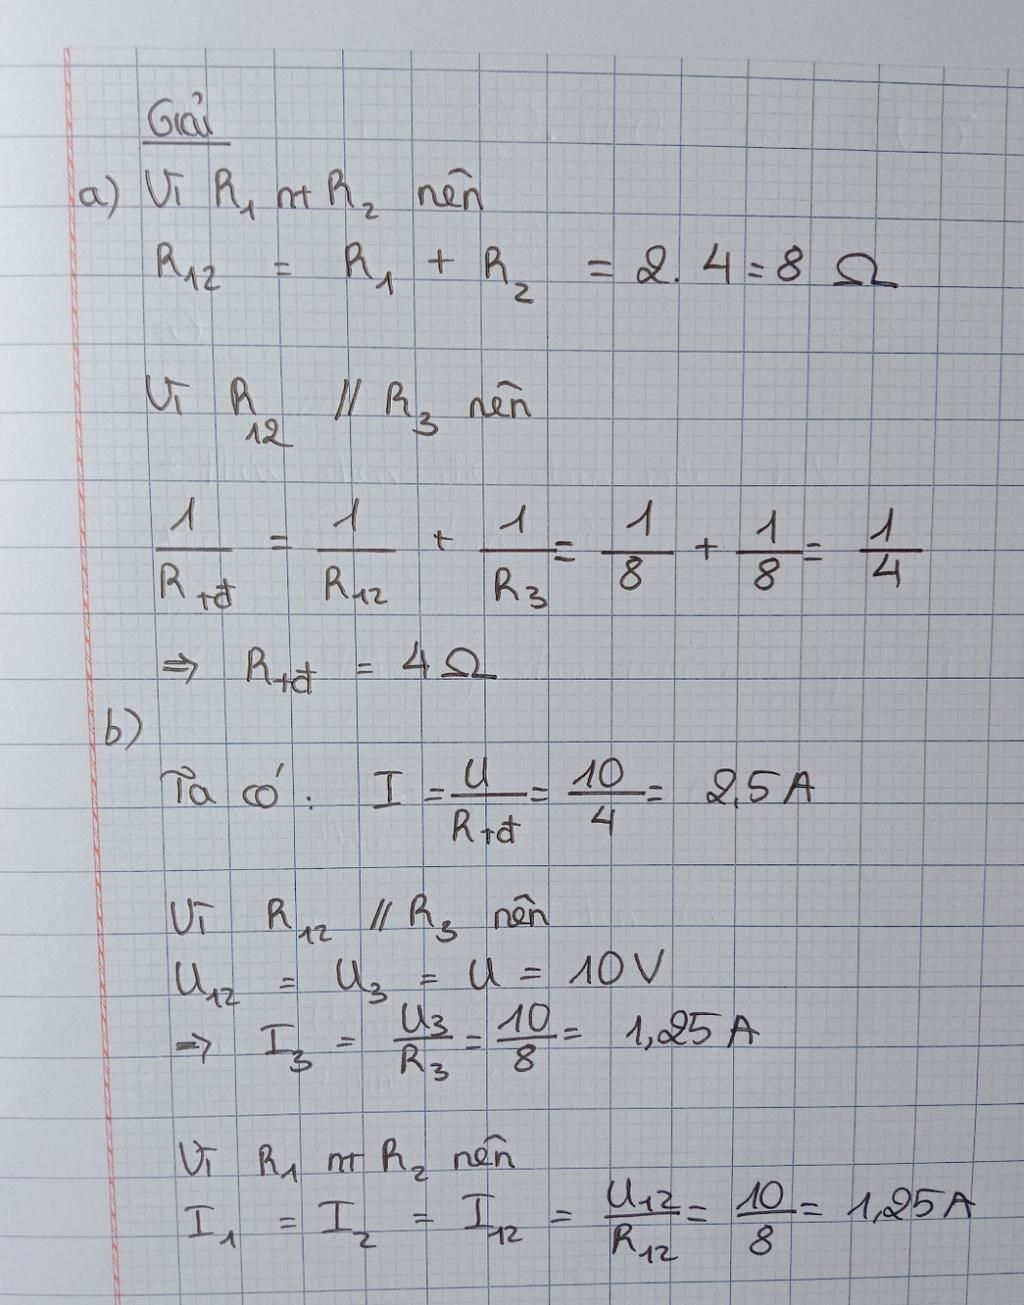 Giải
a) Vì R₁ nt R₂ nên
R₁₂ = R₁ + R₂ = 2. 4 = 8 Ω
Vì R₁₂ // R₃ nên
1/Rtđ = 1/R₁₂ + 1/R₃ = 1/8 + 1/8 = 1/4
⇒ Rtđ = 4 Ω
b)
Ta có: I = U/Rtđ = 10/4 = 2,5 A
Vì R₁₂ // R₃ nên
U₁₂ = U₃ = U = 10 V
⇒ I₃ = U₃/R₃ = 10/8 = 1,25 A
Vì R₁ nt R₂ nên
I₁ = I₂ = I₁₂ = U₁₂/R₁₂ = 10/8 = 1,25 A